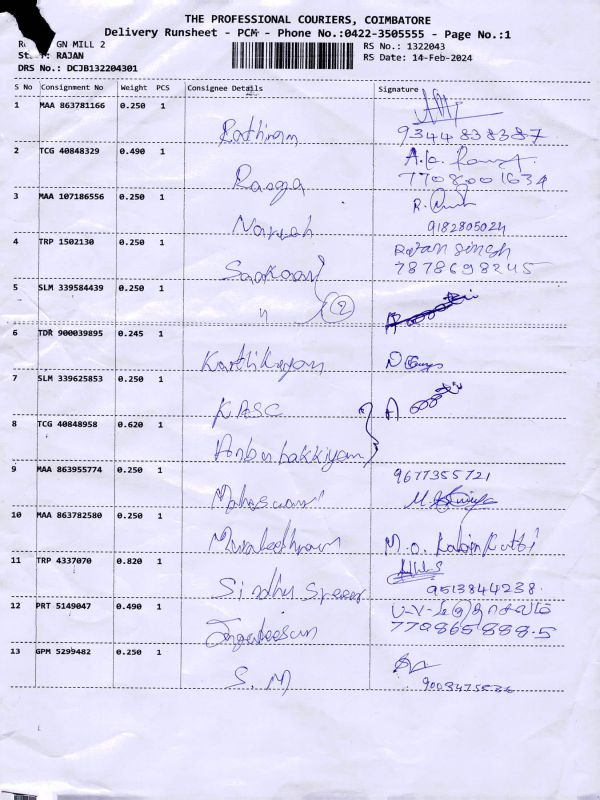 THE PROFESSIONAL COURIERS, COIMBATORE
Delivery Runsheet - PCM - Phone No.:0422-3505555 - Page No.:1
GN MILL 2
RS No.: 1322043
RAJAN
RS Date: 14-Feb-2024
DRS No.: DCJB132204301
S No Consignment No Weight PCS Consignee Details Signature
1 MAA 863781166 0.250 1
Rathinam 9344838387
2 TCG 40848329 0.490 1
Ranga 7708001634
3 MAA 107186556 0.250 1
Naresh 9182805024
4 TRP 1502130 0.250 1 Ratan Singh
7878698245
5 SLM 339584439 0.250 1
" 2
6 TDR 900039895 0.245 1
Karthikeyan
7 SLM 339625853 0.250 1
KASC
8 TCG 40848958 0.620 1
Anbu bakkiyam
9 MAA 863955774 0.250 1 9677355721
Maheswari
10 MAA 863782580 0.250 1
Muraleedharan
11 TRP 4337070 0.820 1
Sindhu 9513844238.
12 PRT 5149047 0.490 1
770865888.5
13 GPM 5299482 0.250 1
S. M